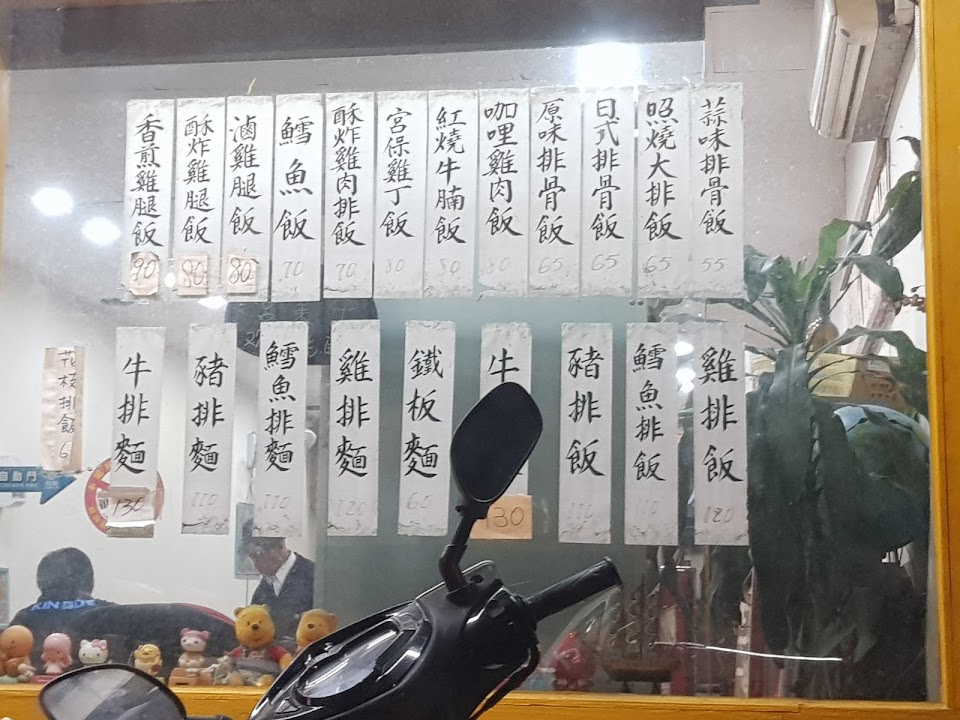 蒜味排骨飯 55
照燒大排飯 65
日式排骨飯 65
原味排骨飯 65
咖哩雞肉飯 80
紅燒牛腩飯 80
宮保雞丁飯 80
酥炸雞肉排飯 70
鱈魚飯 70
滷雞腿飯 80
酥炸雞腿飯 80
香煎雞腿飯 90
雞排飯 120
鱈魚排飯 110
豬排飯 110
牛 130
鐵板麵 60
雞排麵 120
鱈魚排麵 110
豬排麵 110
牛排麵 130
花枝排飯 6
自動門